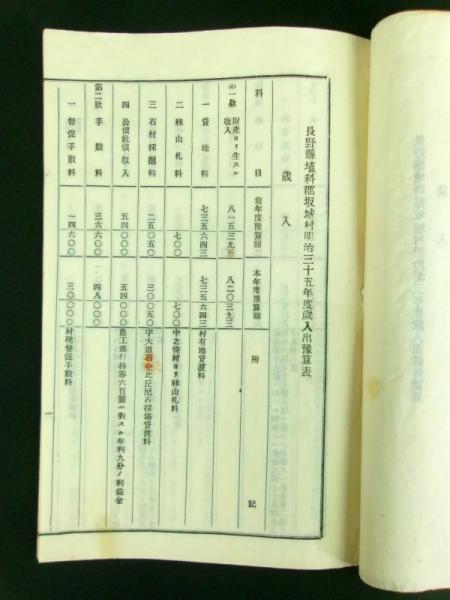 長野縣埴科郡坂城村明治三十五年度歲入出豫算表
歲入
科目 前年度豫算額 本年度豫算額 附記
第一款 財產ヨリ生スル收入 八一五三九三 八二〇三九三
一 貸地料 七三五六四三 七三五六四三 村有地貸渡料
二 秣山札料 七〇〇 七〇〇 中之條村ヨリ秣山札料
三 石材採掘料 二五〇五〇 三〇〇五〇 字大道
四 公債社債收入 五四〇〇〇 五四〇〇〇 農工銀行株券六百圓ニ對スル年利九分ノ利益金
第二款 手數料 三六六〇〇 四八〇〇〇
一 督促手數料 一四六〇〇 三〇〇〇〇 村稅督促手數料
一